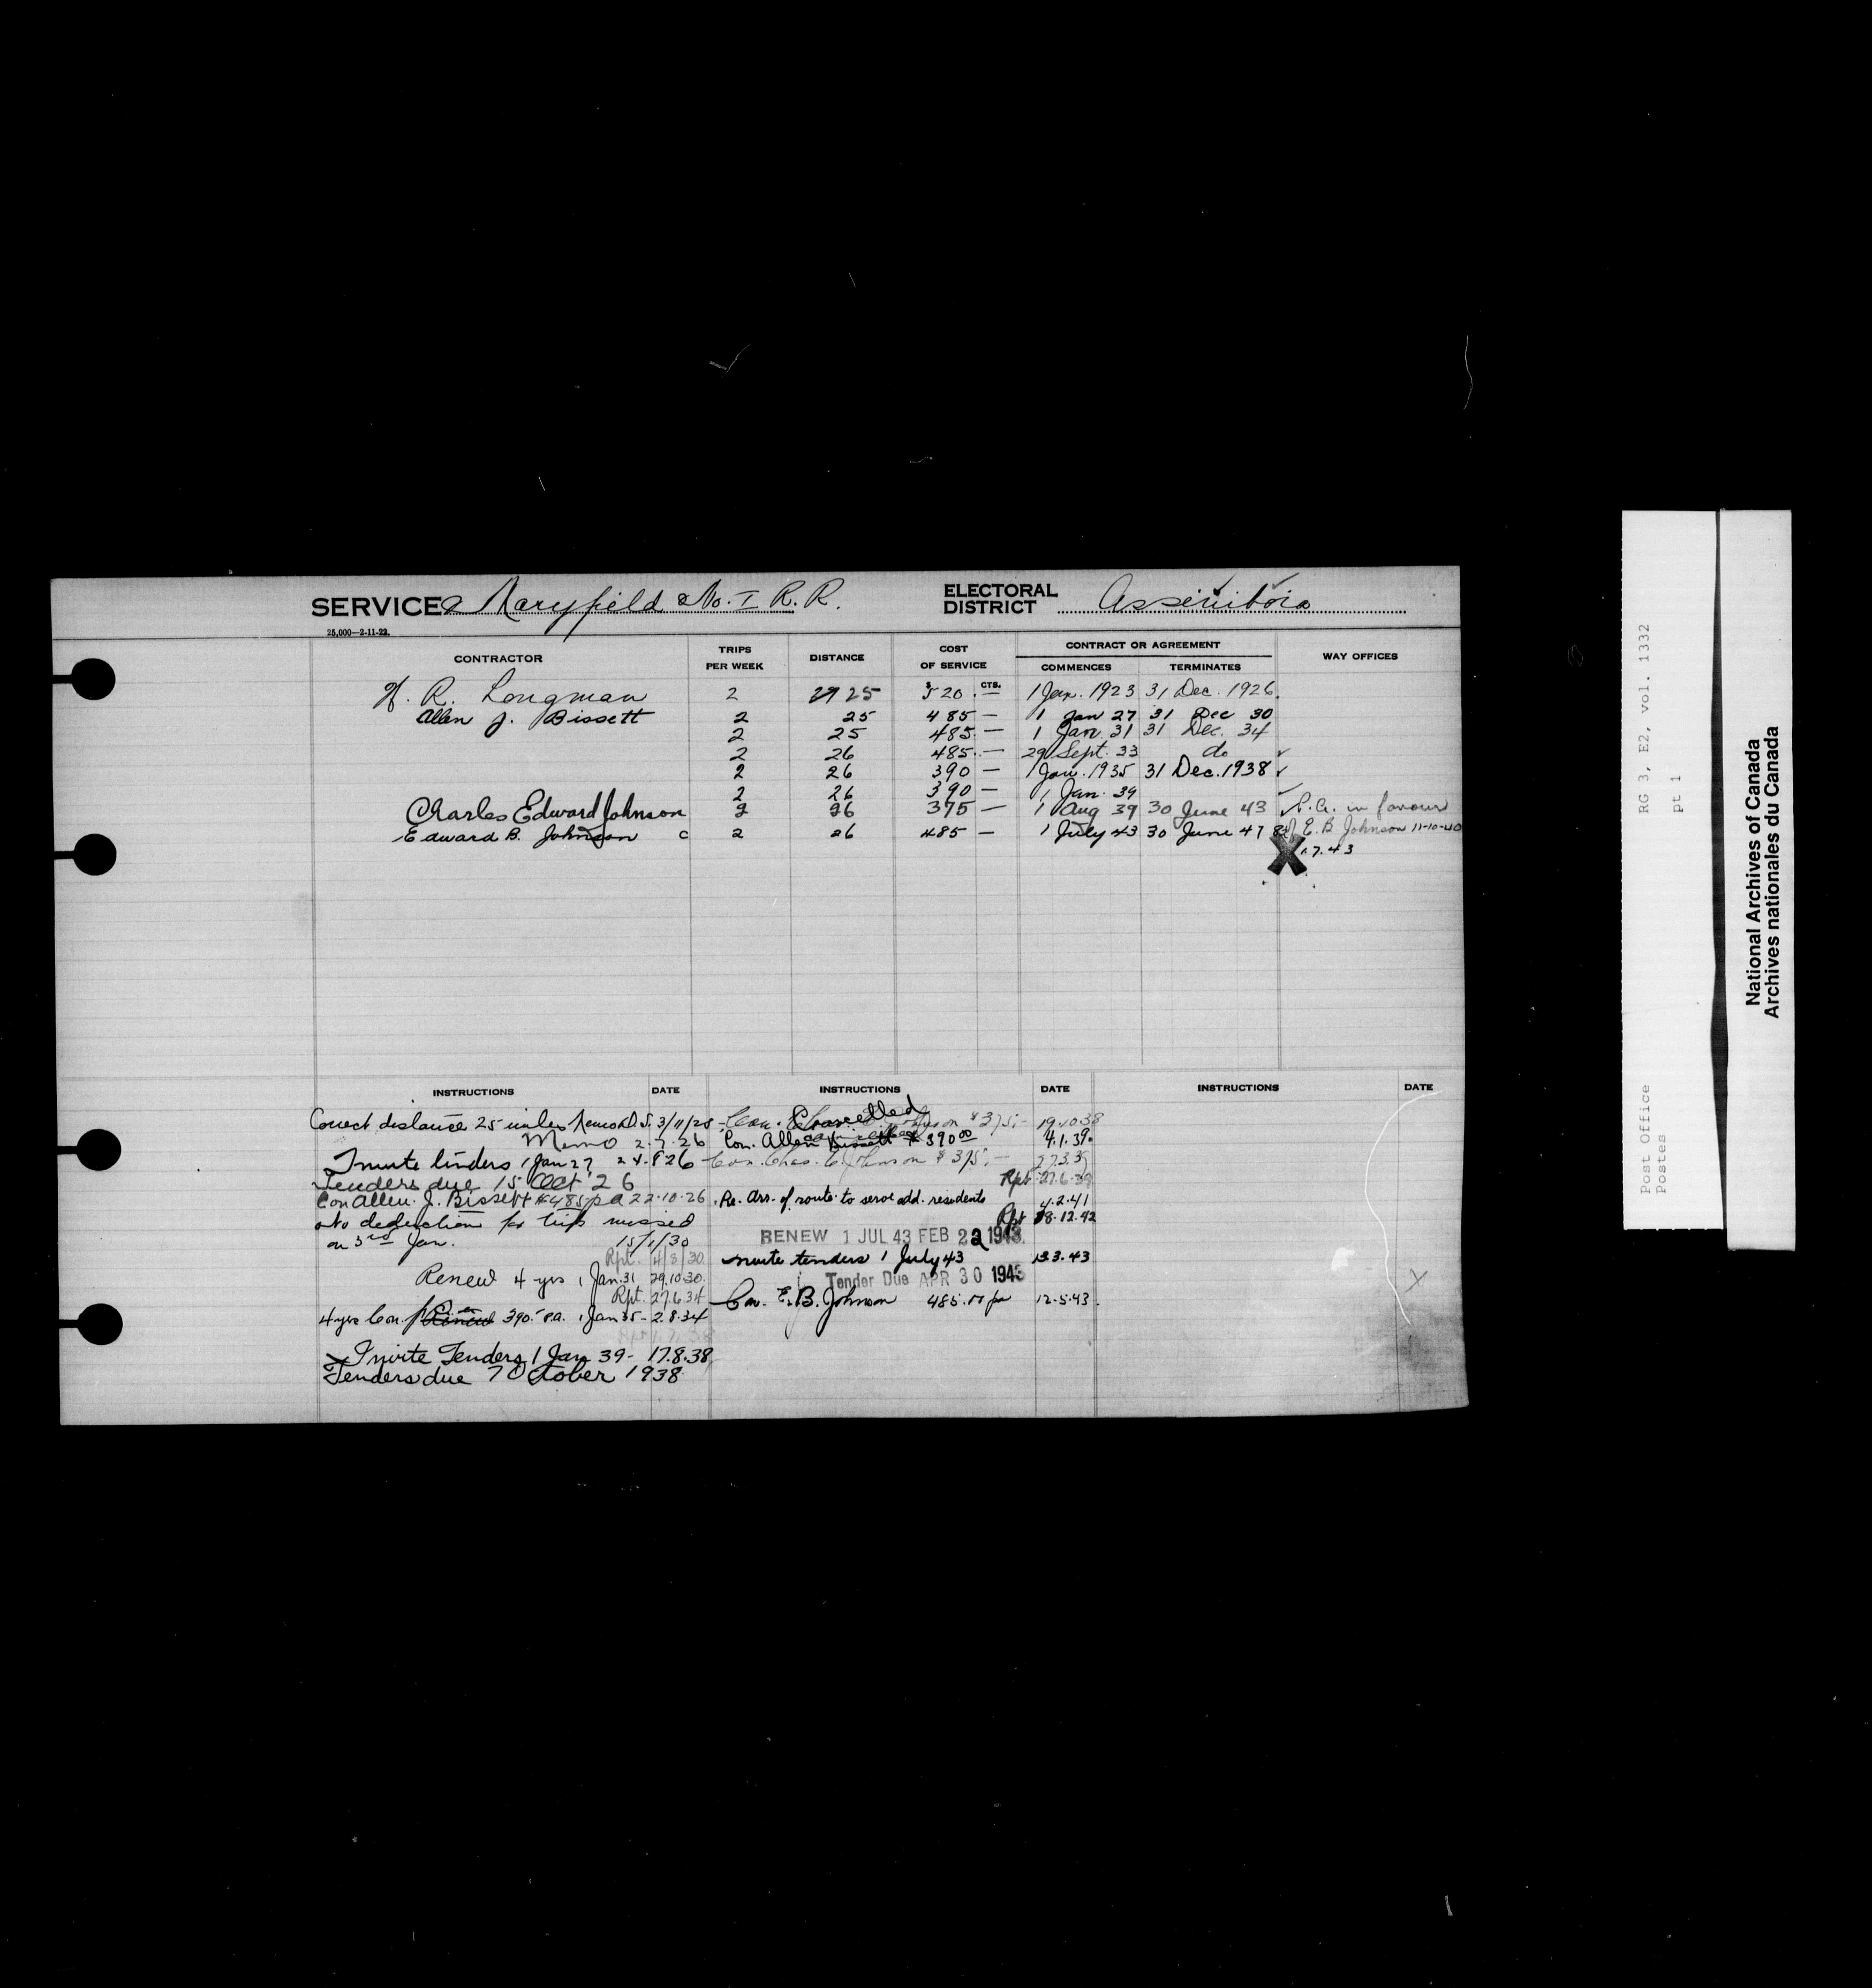 SERVICE Maryfield No. I R.R. ELECTORAL DISTRICT Assiniboia
25,000—2-11-22.
CONTRACTOR TRIPS PER WEEK DISTANCE COST OF SERVICE CONTRACT OR AGREEMENT COMMENCES TERMINATES WAY OFFICES
$ CTS.
R. Longman 2 25 520 — 1 Jan. 1923 31 Dec. 1926
Allen J. Bissett 2 25 485 — 1 Jan 27 31 Dec 30
2 25 485 — 1 Jan. 31 31 Dec. 34
2 26 485 — 29 Sept. 33 do
2 26 390 — 1 Jan. 1935 31 Dec. 1938
2 26 390 — 1 Jan. 39
Charles Edward Johnson 2 26 375 — 1 Aug 39 30 June 43 in favour
Edward B. Johnson c 2 26 485 — 1 July 43 30 June 47 of E. B Johnson 11-10-40
X 7.43
INSTRUCTIONS DATE INSTRUCTIONS DATE INSTRUCTIONS DATE
Correct distance 25 miles Memo D.S. 3/11/25
Memo 2.7.26
Invite tenders 1 Jan 27 24.8.26
Tenders due 15 Oct 26
Con Allen. J. Bissett $485 p a 22.10.26
No deduction for trips missed
on 3rd Jan. 15/1/30
Rpt. 4/8/30
Renew 4 yrs 1 Jan. 31 29.10.30.
Rpt. 27.6.34
4 yrs Con. Renew 390.- P.a. 1 Jan 35 - 2.8.34
Invite Tenders 1 Jan 39 - 17.8.38
Tenders due 7 October 1938
Con. Cancelled Johnson $375.- 19.10.38
Con. Allen Bissett $390.00 4.1.39.
Con. Chas. E. Johnson $375.— 27.3.39
Rpt 27.6.39
Re. Arr. of route to serve add. residents 4.2.41
Rpt 8.12.42
RENEW 1 JUL 43 FEB 22 1943.
Invite tenders 1 July 43 13.3.43
Tender Due APR 30 1943
Con. E. B. Johnson 485. pa 12-5-43.
X
RG 3, E2, vol. 1332
pt 1
Post Office
Postes
National Archives of Canada
Archives nationales du Canada